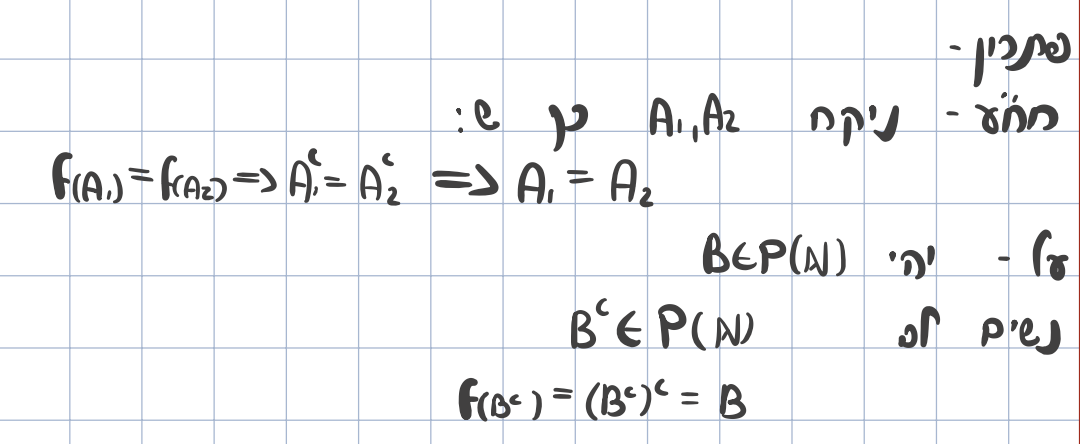 פתרון -
חח״ע - ניקח A₁,A₂ כך ש:
f(A₁) = f(A₂) => A₁ᶜ = A₂ᶜ => A₁ = A₂
על - יהי B∈P(ℕ)
נשים לב Bᶜ ∈ P(ℕ)
f(Bᶜ) = (Bᶜ)ᶜ = B